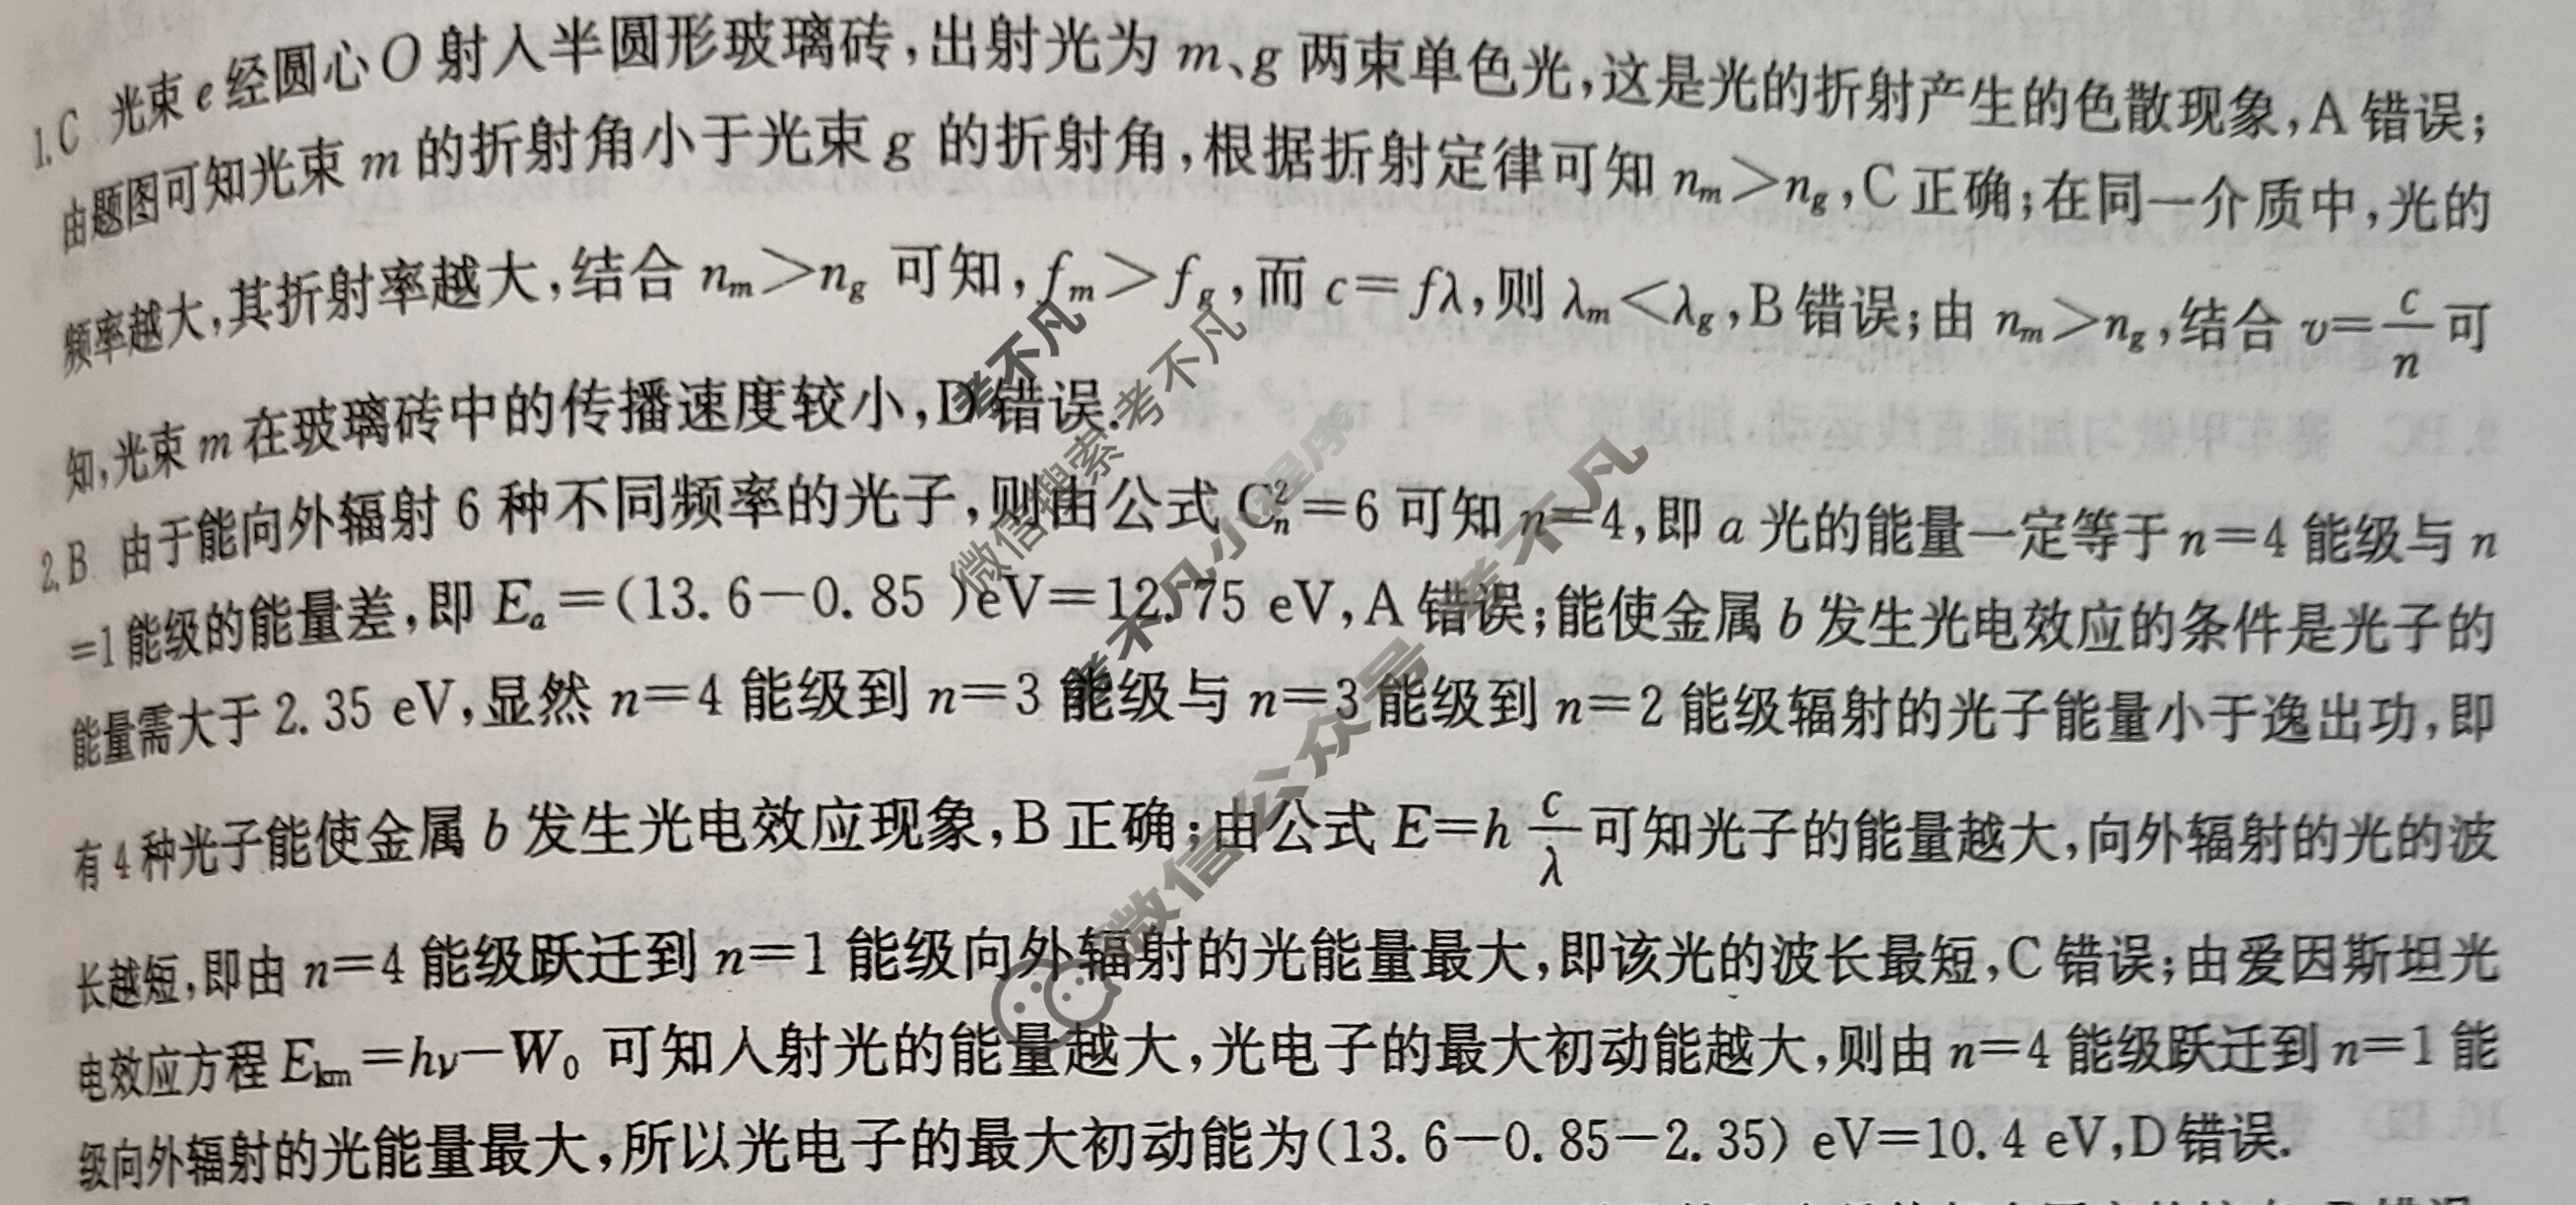 1.C 光束e经圆心O射入半圆形玻璃砖,出射光为m、g两束单色光,这是光的折射产生的色散现象,A错误;
由题图可知光束m的折射角小于光束g的折射角,根据折射定律可知 nₘ>n_g,C正确;在同一介质中,光的
频率越大,其折射率越大,结合 nₘ>n_g 可知,fₘ>f_g,而 c=fλ,则 λₘ<λ_g,B错误;由 nₘ>n_g,结合 v=c/n 可
知,光束m在玻璃砖中的传播速度较小,D错误.
2.B 由于能向外辐射6种不同频率的光子,则由公式 C²ₙ=6 可知 n=4,即a光的能量一定等于n=4能级与n
=1能级的能量差,即 Eₐ=(13.6-0.85)eV=12.75 eV,A错误;能使金属b发生光电效应的条件是光子的
能量需大于2.35 eV,显然n=4能级到n=3能级与n=3能级到n=2能级辐射的光子能量小于逸出功,即
有4种光子能使金属b发生光电效应现象,B正确;由公式 E=h c/λ 可知光子的能量越大,向外辐射的光的波
长越短,即由n=4能级跃迁到n=1能级向外辐射的光能量最大,即该光的波长最短,C错误;由爱因斯坦光
电效应方程 Eₖₘ=hν-W₀ 可知入射光的能量越大,光电子的最大初动能越大,则由n=4能级跃迁到n=1能
级向外辐射的光能量最大,所以光电子的最大初动能为(13.6-0.85-2.35) eV=10.4 eV,D错误.
考不凡
微信搜索 考不凡
考不凡小程序
微信公众号 考不凡